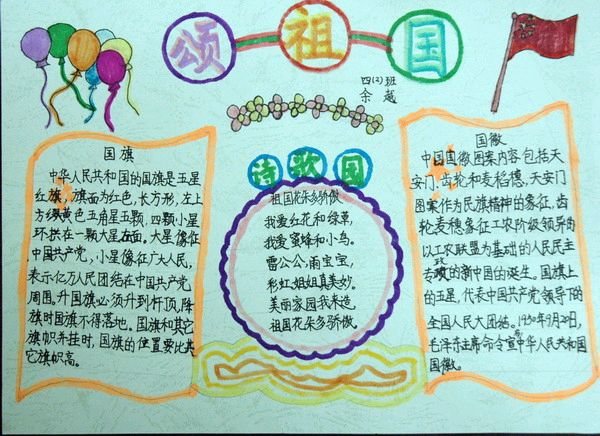 颂祖国
四(2)班
余越
国旗
中华人民共和国的国旗是五星
红旗，旗面为红色，长方形，左上
方缀黄色五角星五颗，四颗小星
环拱在一颗大星右面。大星像征
中国共产党，小星像征广大人民，
表示亿万人民团结在中国共产党
周围。升国旗必须升到杆顶，降
旗时国旗不得落地。国旗和其它
旗帜并挂时，国旗的位置要比其
它旗帜高。
诗歌园
祖国花朵多骄傲
我爱红花和绿草，
我爱蜜蜂和小鸟。
雷公公，雨宝宝，
彩虹姐姐真美妙。
美丽家园我来造，
祖国花朵多骄傲。
国徽
中国国徽图案内容包括天
安门、齿轮和麦稻穗，天安门
图案作为民族精神的象征，齿
轮麦穗象征工农阶级领导的
以工农联盟为基础的人民民主
专政的新中国的诞生。国旗上
的五星，代表中国共产党领导下的
全国人民大团结。1950年9月20日，
毛泽东主席命令宣中华人民共和国
国徽。